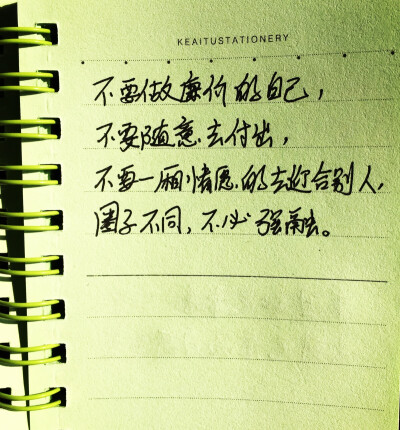 KEAITUSTATIONERY
不要做廉价的自己，
不要随意去付出，
不要一厢情愿的去迎合别人，
圈子不同，不必强融。